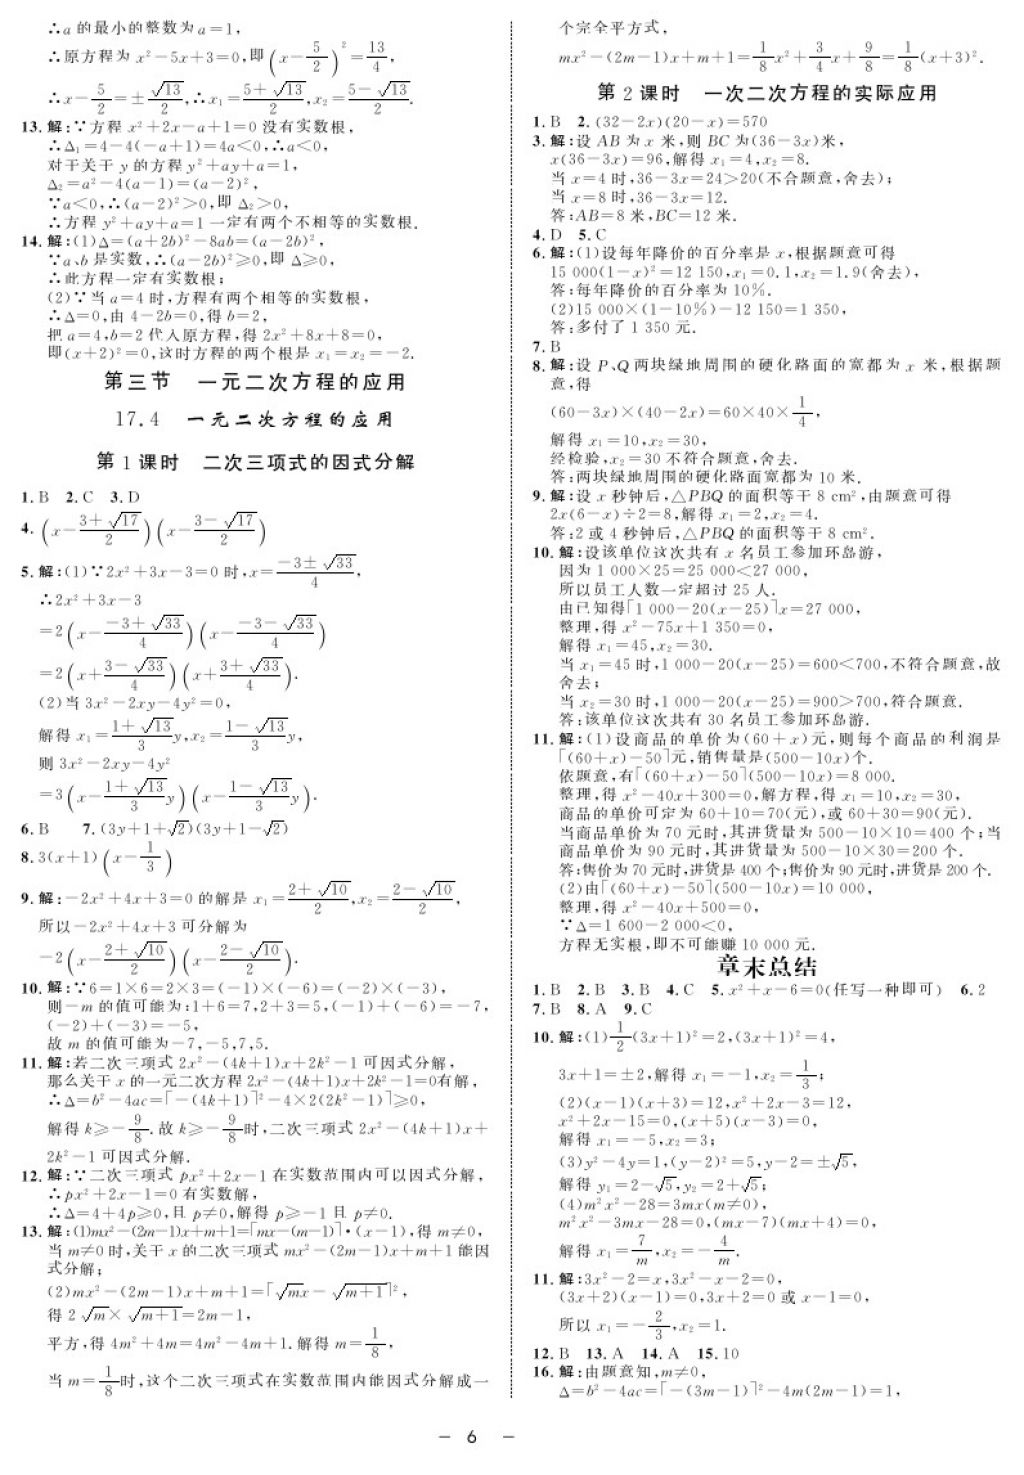 ∴a 的最小的整数为 a=1,
∴原方程为 x²-5x+3=0,即(x-5/2)²=13/4,
∴x-5/2=±√13/2,∴x₁=(5+√13)/2,x₂=(5-√13)/2.
13.解:∵方程 x²+2x-a+1=0 没有实数根,
∴Δ₁=4-4(-a+1)=4a<0,∴a<0,
对于关于 y 的方程 y²+ay+a=1,
Δ₂=a²-4(a-1)=(a-2)²,
∵a<0,∴(a-2)²>0,即 Δ₂>0,
∴方程 y²+ay+a=1 一定有两个不相等的实数根.
14.解:(1)Δ=(a+2b)²-8ab=(a-2b)²,
∵a、b 是实数,∴(a-2b)²≥0,即 Δ≥0,
∴此方程一定有实数根;
(2)∵当 a=4 时,方程有两个相等的实数根,
∴Δ=0,由 4-2b=0,得 b=2,
把 a=4,b=2 代入原方程,得 2x²+8x+8=0,
即(x+2)²=0,这时方程的两个根是 x₁=x₂=-2.
第三节 一元二次方程的应用
17.4 一元二次方程的应用
第 1 课时 二次三项式的因式分解
1.B 2.C 3.D
4.(x-(3+√17)/2)(x-(3-√17)/2)
5.解:(1)∵2x²+3x-3=0 时,x=(-3±√33)/4,
∴2x²+3x-3
=2(x-(-3+√33)/4)(x-(-3-√33)/4)
=2(x+(3-√33)/4)(x+(3+√33)/4).
(2)当 3x²-2xy-4y²=0,
解得 x₁=(1+√13)/3 y,x₂=(1-√13)/3 y,
则 3x²-2xy-4y²
=3(x-(1+√13)/3 y)(x-(1-√13)/3 y).
6.B 7.(3y+1+√2)(3y+1-√2)
8.3(x+1)(x-1/3)
9.解:-2x²+4x+3=0 的解是 x₁=(2+√10)/2,x₂=(2-√10)/2,
所以-2x²+4x+3 可分解为
-2(x-(2+√10)/2)(x-(2-√10)/2).
10.解:∵6=1×6=2×3=(-1)×(-6)=(-2)×(-3),
则-m 的值可能为:1+6=7,2+3=5,(-1)+(-6)=-7,
(-2)+(-3)=-5,
故 m 的值可能为-7,-5,7,5.
11.解:若二次三项式 2x²-(4k+1)x+2k²-1 可因式分解,
那么关于 x 的一元二次方程 2x²-(4k+1)x+2k²-1=0有解,
∴Δ=b²-4ac=[-(4k+1)]²-4×2(2k²-1)≥0,
解得 k≥-9/8.故 k≥-9/8时,二次三项式 2x²-(4k+1)x+
2k²-1 可因式分解.
12.解:∵二次三项式 px²+2x-1 在实数范围内可以因式分解,
∴px²+2x-1=0 有实数解,
∴Δ=4+4p≥0,且 p≠0,解得 p≥-1 且 p≠0.
13.解:(1)mx²-(2m-1)x+m+1=[mx-(m-1)]·(x-1),得 m≠0,
当 m≠0 时,关于 x 的二次三项式 mx²-(2m-1)x+m+1 能因
式分解;
(2)mx²-(2m-1)x+m+1=[√mx-√m+1]²,
得 2√m×√m+1=2m-1,
平方,得 4m²+4m=4m²-4m+1.解得 m=1/8,
当 m=1/8时,这个二次三项式在实数范围内能因式分解成一
个完全平方式,
mx²-(2m-1)x+m+1=1/8x²+3/4x+9/8=1/8(x+3)².
第 2 课时 一次二次方程的实际应用
1.B 2.(32-2x)(20-x)=570
3.解:设 AB 为 x 米,则 BC 为(36-3x)米,
x(36-3x)=96,解得 x₁=4,x₂=8.
当 x=4 时,36-3x=24>20(不合题意,舍去);
当 x=8 时,36-3x=12.
答:AB=8 米,BC=12 米.
4.D 5.C
6.解:(1)设每年降价的百分率是 x,根据题意可得
15 000(1-x)²=12 150,x₁=0.1,x₂=1.9(舍去),
答:每年降价的百分率为 10%.
(2)15 000×(1-10%)-12 150=1 350,
答:多付了 1 350 元.
7.B
8.解:设 P、Q 两块绿地周围的硬化路面的宽都为 x 米,根据题
意,得
(60-3x)×(40-2x)=60×40×1/4,
解得 x₁=10,x₂=30,
经检验,x₂=30 不符合题意,舍去.
答:两块绿地周围的硬化路面宽都为 10 米.
9.解:设 x 秒钟后,△PBQ 的面积等于 8 cm²,由题意可得
2x(6-x)÷2=8,解得 x₁=2,x₂=4.
答:2 或 4 秒钟后,△PBQ 的面积等于 8 cm².
10.解:设该单位这次共有 x 名员工参加环岛游,
因为 1 000×25=25 000<27 000,
所以员工人数一定超过 25 人.
由已知得[1 000-20(x-25)]x=27 000,
整理,得 x²-75x+1 350=0,
解得 x₁=45,x₂=30.
当 x₁=45 时,1 000-20(x-25)=600<700,不符合题意,故
舍去;
当 x₂=30 时,1 000-20(x-25)=900>700,符合题意.
答:该单位这次共有 30 名员工参加环岛游.
11.解:(1)设商品的单价为(60+x)元,则每个商品的利润是
[(60+x)-50]元,销售量是(500-10x)个.
依题意,有[(60+x)-50](500-10x)=8 000.
整理,得 x²-40x+300=0,解方程,得 x₁=10,x₂=30,
商品的单价可定为 60+10=70(元),或 60+30=90(元).
当商品单价为 70 元时,其进货量为 500-10×10=400 个;当
商品单价为 90 元时,其进货量为 500-10×30=200 个.
答:售价为 70 元时,进货是 400 个;售价为 90 元时,进货是 200 个.
(2)由[(60+x)-50](500-10x)=10 000,
整理,得 x²-40x+500=0,
∵Δ=1 600-2 000<0,
方程无实根,即不可能赚 10 000 元.
章末总结
1.B 2.B 3.B 4.C 5.x²+x-6=0(任写一种即可) 6.2
7.B 8.A 9.C
10.解:(1)1/2(3x+1)²=2,(3x+1)²=4,
3x+1=±2,解得 x₁=-1,x₂=1/3;
(2)(x-1)(x+3)=12,x²+2x-3=12,
x²+2x-15=0,(x+5)(x-3)=0,
解得 x₁=-5,x₂=3;
(3)y²-4y=1,(y-2)²=5,y-2=±√5,
解得 y₁=2-√5,y₂=2+√5;
(4)m²x²-28=3mx(m≠0),
m²x²-3mx-28=0,(mx-7)(mx+4)=0,
解得 x₁=7/m,x₂=-4/m.
11.解:3x²-2=x,3x²-x-2=0,
(3x+2)(x-1)=0,3x+2=0 或 x-1=0,
所以 x₁=-2/3,x₂=1.
12.B 13.A 14.A 15.10
16.解:由题意知,m≠0,
Δ=b²-4ac=[-(3m-1)]²-4m(2m-1)=1,
- 6 -